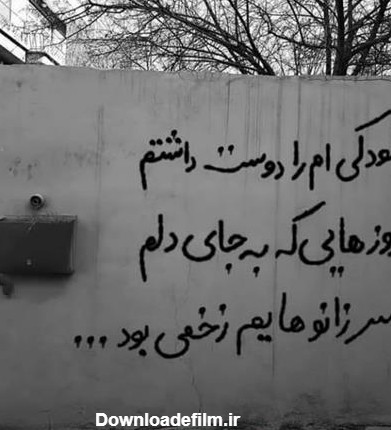 ودکی ام را دوست داشتم
وزهایی که به جای دلم
سر زانوهایم زخمی بود ...
Downloadefilm.ir